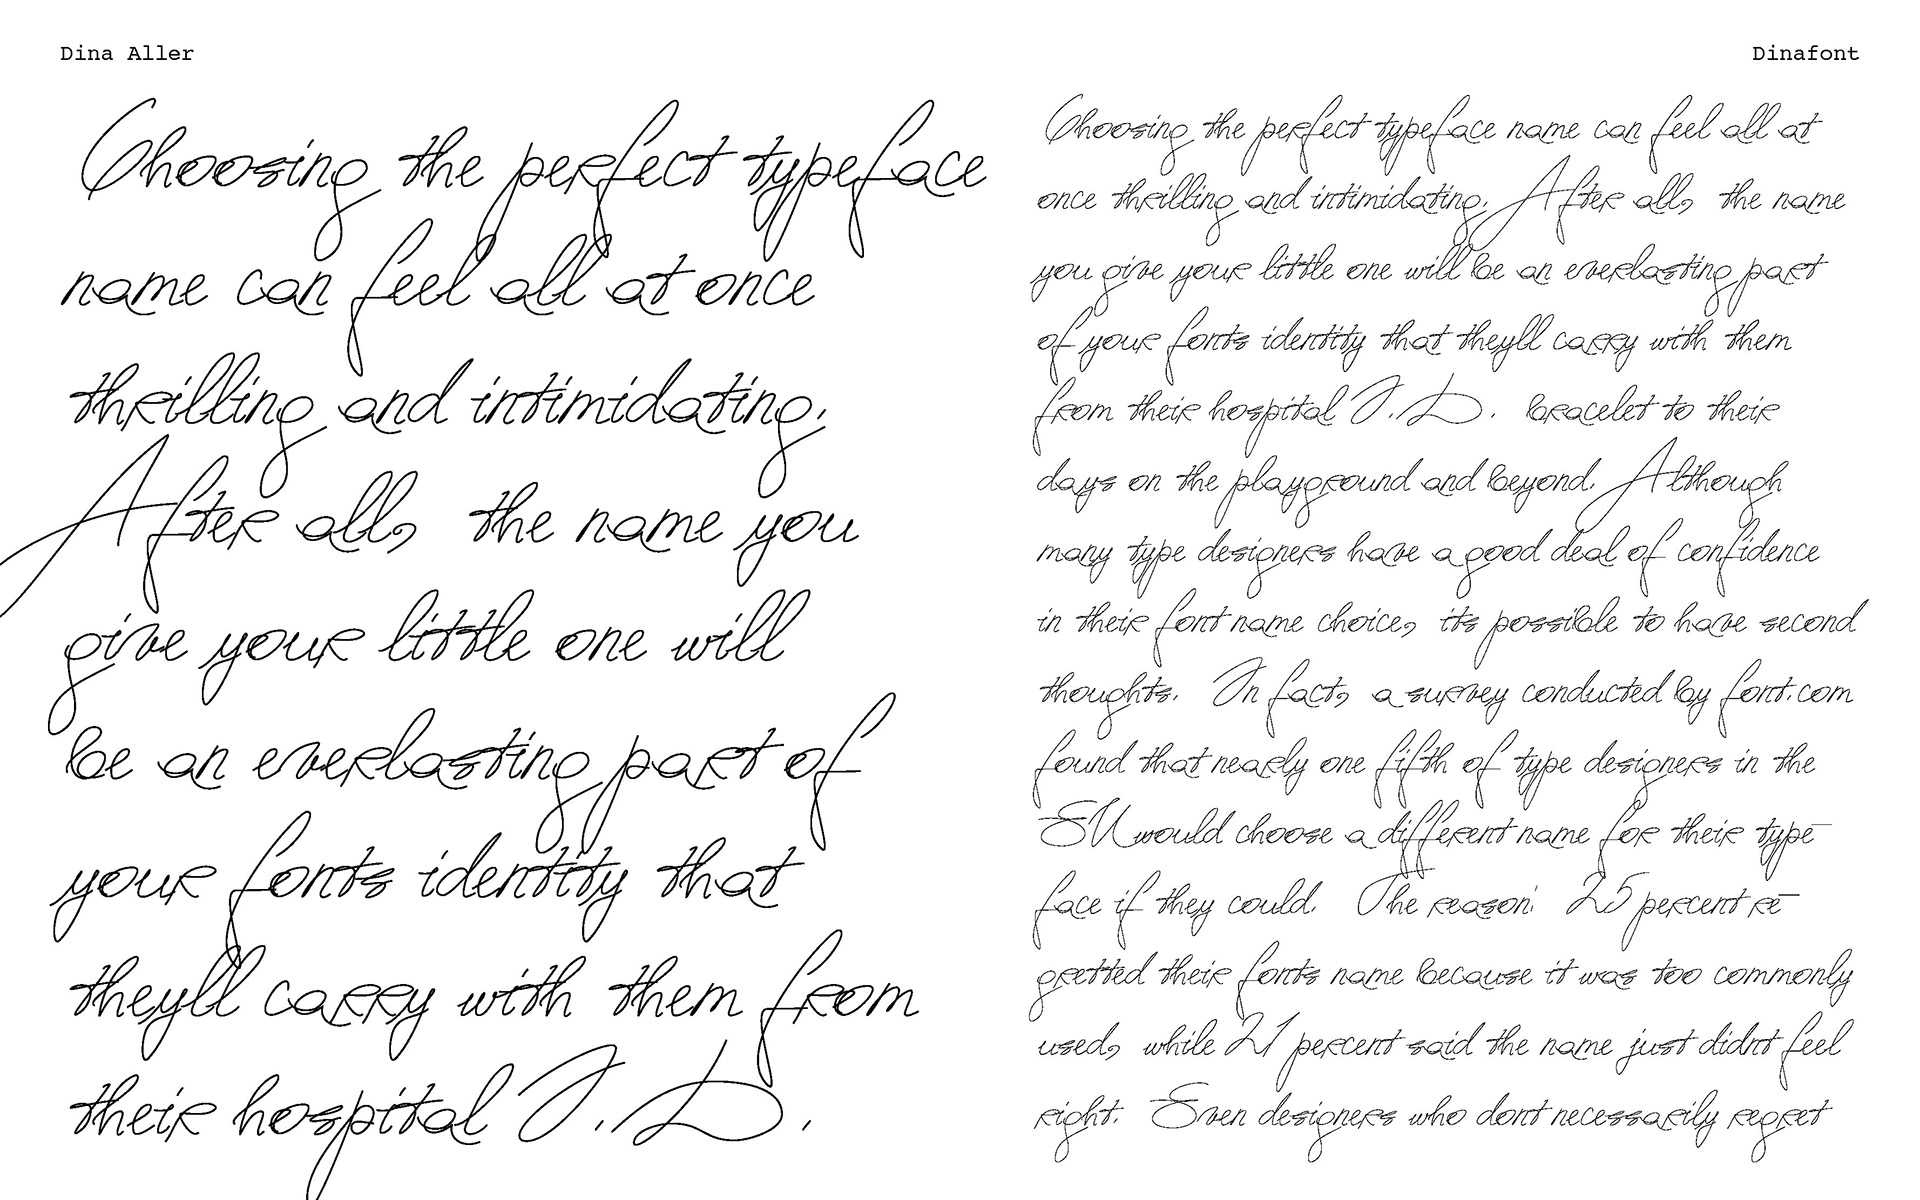 Dina Aller
Dinafont
Choosing the perfect typeface
name can feel all at once
thrilling and intimidating.
After all, the name you
give your little one will
be an everlasting part of
your fonts identity that
theyll carry with them from
their hospital I.D.
Choosing the perfect typeface name can feel all at
once thrilling and intimidating. After all, the name
you give your little one will be an everlasting part
of your fonts identity that theyll carry with them
from their hospital I.D. bracelet to their
days on the playground and beyond. Although
many type designers have a good deal of confidence
in their font name choice, its possible to have second
thoughts. In fact, a survey conducted by font.com
found that nearly one fifth of type designers in the
EU would choose a different name for their type-
face if they could. The reason: 25 percent re-
gretted their fonts name because it was too commonly
used, while 21 percent said the name just didnt feel
right. Even designers who dont necessarily regret